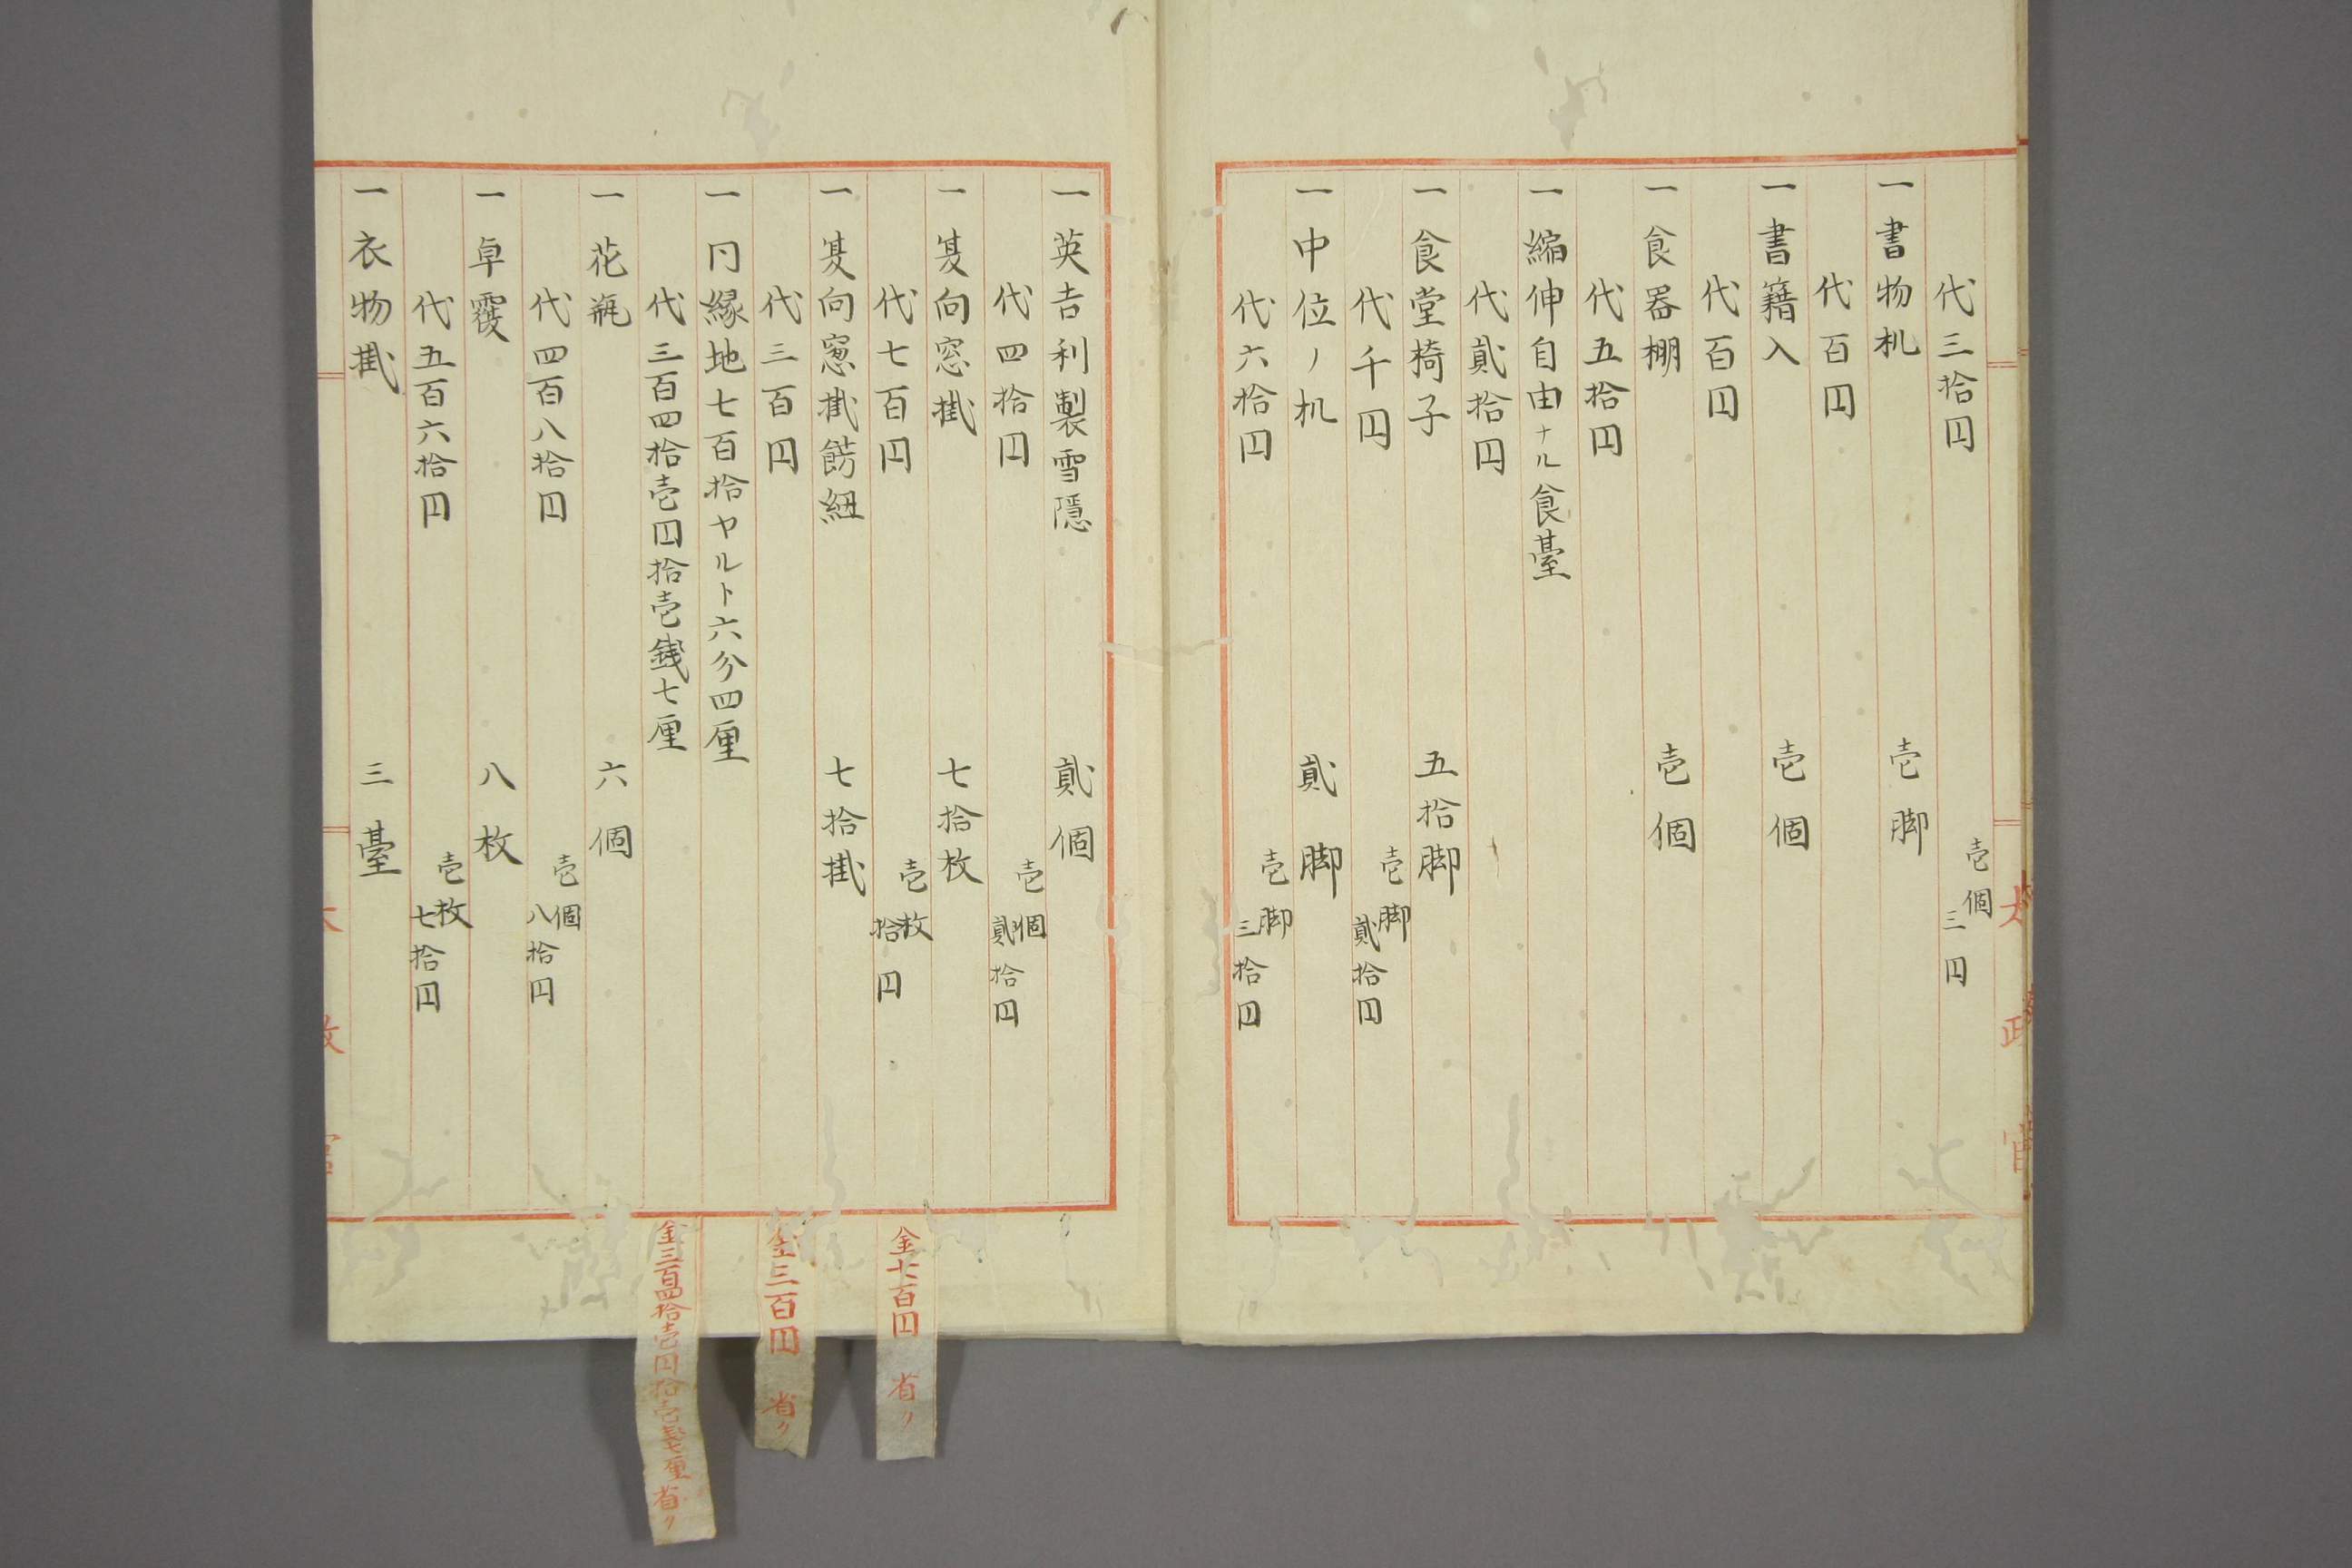 代三拾円 壱個三円
一書物机 壱脚
代百円
一書籍入 壱個
代百円
一食器棚 壱個
代五拾円
一縮伸自由ナル食臺
代貳拾円
一食堂椅子 五拾脚
代千円 壱脚貳拾円
一中位ノ机 貳脚
代六拾円 壱脚三拾円
一英吉利製雪隠 貳個
代四拾円 壱個貳拾円
一夏向窓掛 七拾枚
代七百円 壱枚拾円
一夏向窓掛餝紐 七拾掛
代三百円
一円縁地七百拾ヤルト六分四厘
代三百四拾壱円拾壱銭七厘
一花瓶 六個
代四百八拾円 壱個八拾円
一卓覆 八枚
代五百六拾円 壱枚七拾円
一衣物掛 三臺
金七百円 省ク
金三百円 省ク
金三百四拾壱円拾壱銭七厘 省ク
太政官